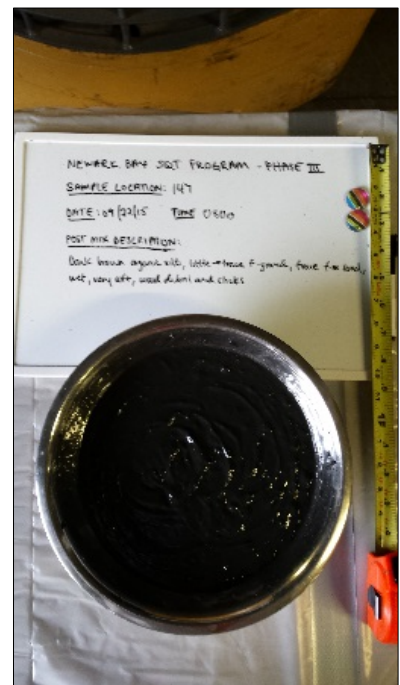 NEWARK BAY SQT PROGRAM - PHASE III
SAMPLE LOCATION: 147
DATE: 09/22/15 TIME 0800
POST MIX DESCRIPTION:
Dark brown organic silt, little-trace f-gravel, trace f-m sand,
wet, very soft, wood debris and sticks